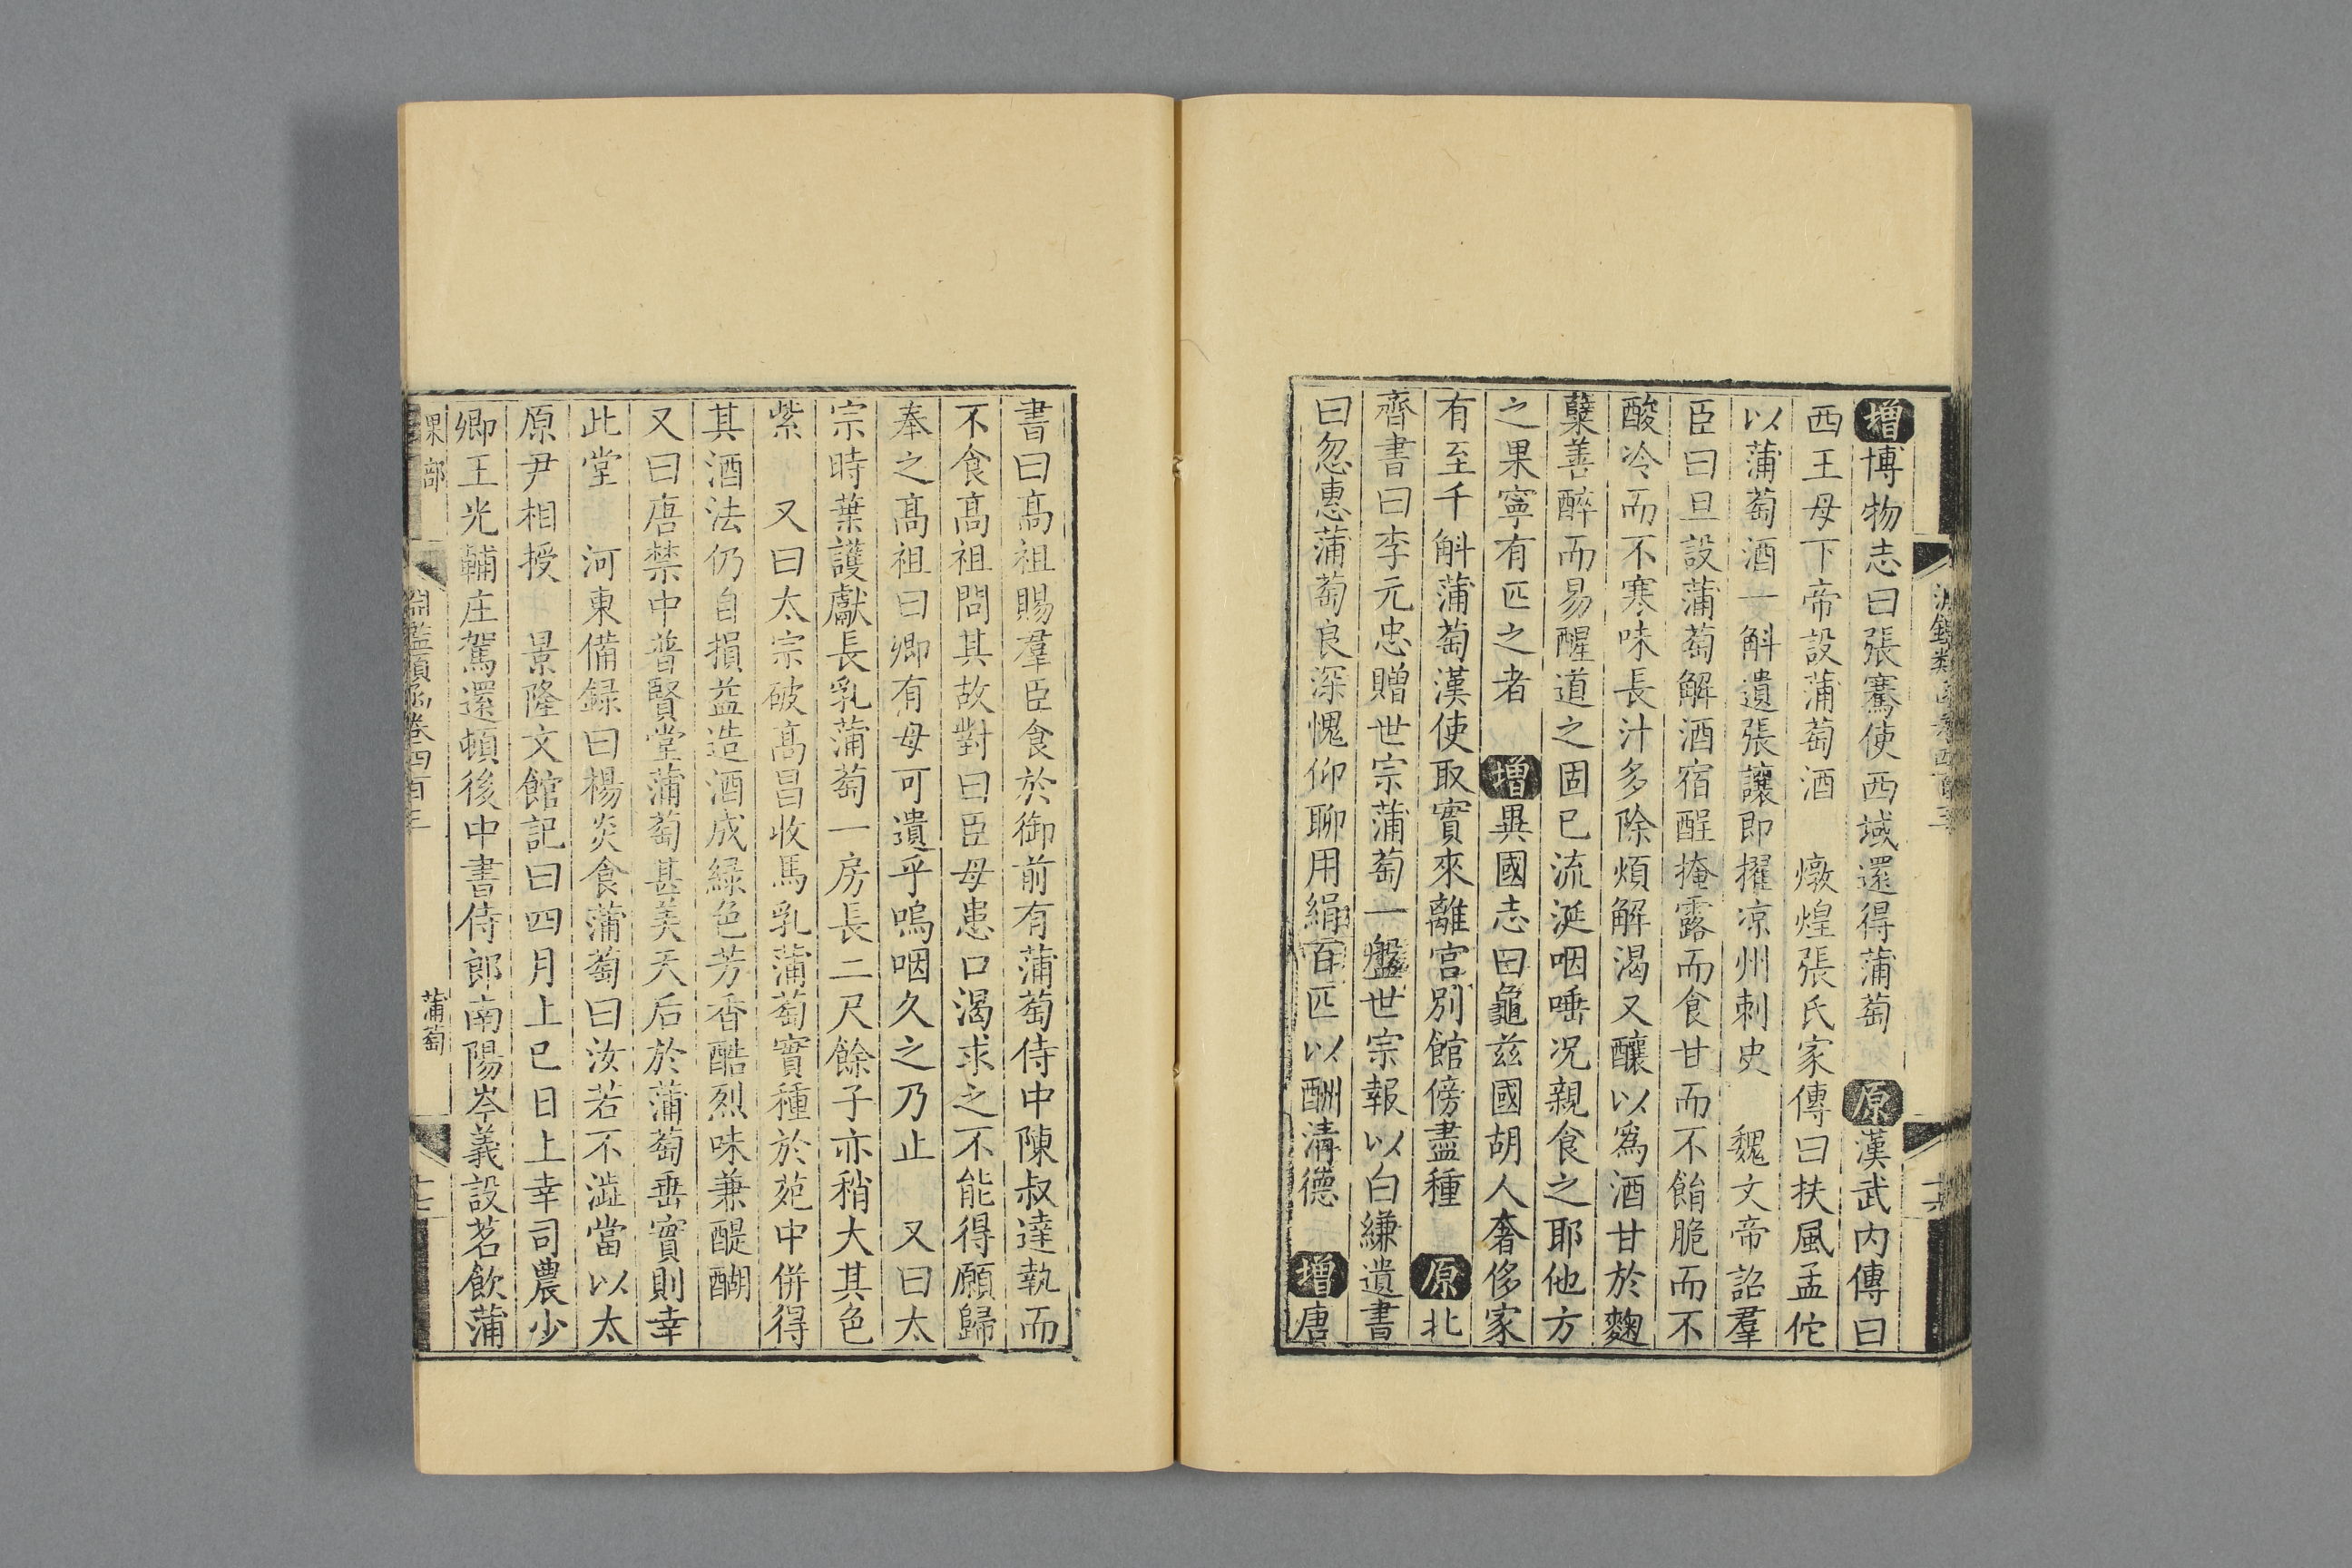 增博物志曰張騫使西域還得蒲萄 原漢武内傳曰
西王母下帝設蒲萄酒 燉煌張氏家傳曰扶風孟佗
以蒲萄酒一斛遺張讓即擢凉州刺史 魏文帝詔羣
臣曰旦設蒲萄解酒宿酲掩露而食甘而不飴脆而不
酸冷而不寒味長汁多除煩解渴又釀以爲酒甘於麴
蘖善醉而易醒道之固已流涎咽唾况親食之耶他方
之果寧有匹之者 增異國志曰龜兹國胡人奢侈家
有至千斛蒲萄漢使取實來離宫别館傍盡種 原北
齊書曰李元忠贈世宗蒲萄一盤世宗報以白縑遺書
曰忽惠蒲萄良深愧仰聊用絹百匹以酬清德 增唐
書曰髙祖賜羣臣食於御前有蒲萄侍中陳叔達執而
不食髙祖問其故對曰臣母患口渴求之不能得願歸
奉之髙祖曰卿有母可遺乎嗚咽久之乃止 又曰太
宗時葉護獻長乳蒲萄一房長二尺餘子亦稍大其色
紫 又曰太宗破髙昌收馬乳蒲萄實種於苑中併得
其酒法仍自損益造酒成緑色芳香酷烈味兼醍醐
又曰唐禁中普賢堂蒲萄甚美天后於蒲萄垂實則幸
此堂 河東備録曰楊炎食蒲萄曰汝若不澁當以太
原尹相授 景隆文館記曰四月上巳日上幸司農少
卿王光輔庄駕還頓後中書侍郎南陽岑義設茗飲蒲
果部 淵鑑類函卷四百三 蒲萄 十七